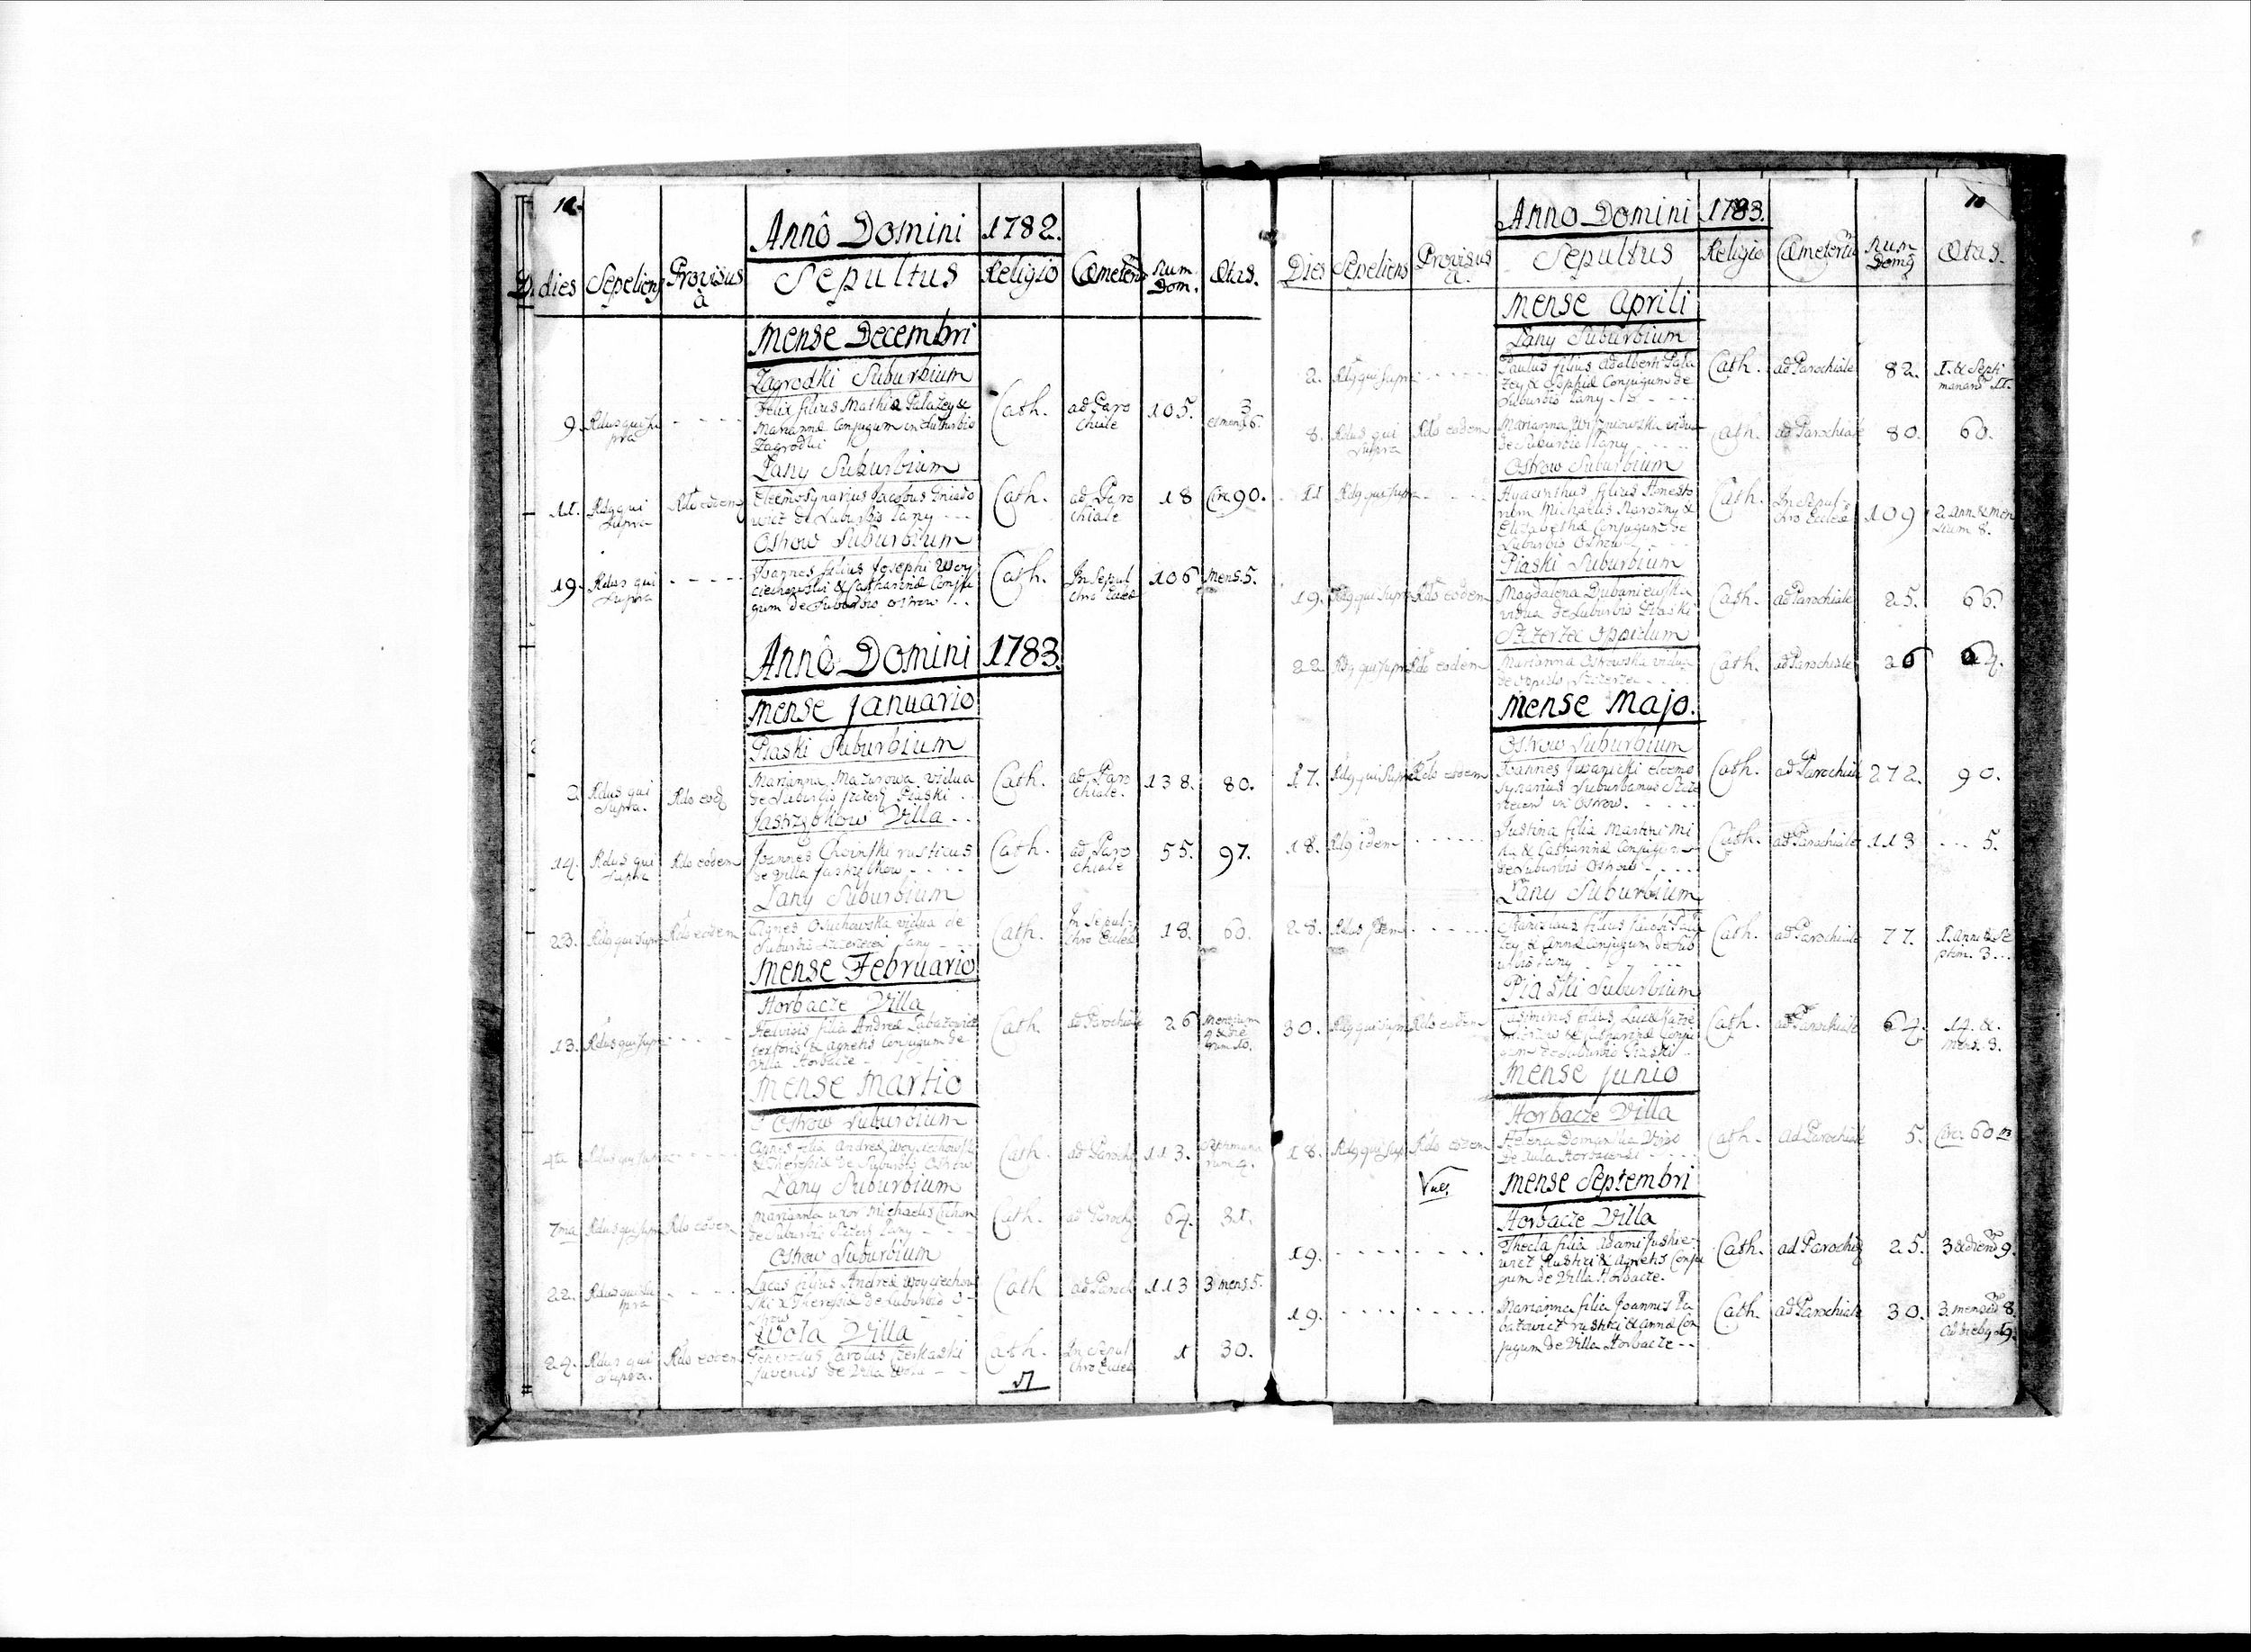 Annô Domini 1782.
D. dies Sepeliens Provisus â Sepultus Religio Cæmeteriũ Num. Dom. Ætas.
Mense Decembri
Zagrodki Suburbium
9. Rdus qui su
pra - - - - Felix filius Mathiæ Palazey &
Mariannæ Conjugum in Suburbio
Zagrodki Cath. ad Paro
chiale 105. 3
et mens. 6.
Lany Suburbium
11. Rdq qui
supra Rdo eodem Eleemosynarius Jacobus Gniado
wicz de Suburbio Lany - - - Cath. ad Paro
chiale 18 Circ. 90.
Ostrow Suburbium
19. Rdus qui
supra - - - - Joannes filius Josephi Woy
ciechowski & Catharinæ Conju
gum de Suburbio Ostrow Cath. In Sepul
chro Eccles 106 mens. 5.
Annô Domini 1783.
Mense Januario
Piaski Suburbium
2 Rdus qui
supra. Rdo eod Marianna Mazurowa vidua
de Suburbio Piaski Cath. ad Paro
chiale. 138. 80.
Jastrzębkow Villa
14. Rdus qui
supra Rdo eodem Joannes Choinski rusticus
de Villa Jastrzębkow - - - - Cath. ad Paro
chiale 55. 97.
Lany Suburbium
23. Rdq qui supra Rdo eodem Agnes Osuchowska vidua de
Suburbio Lany - - - Cath. In Sepul-
chro Eccles 18. 60.
Mense Februario
Horbacze Villa
13. Rdus qui supra - - - Hedvigis filia Andreæ Labazowicz
textoris & Agnetis Conjugum de
Villa Horbacze - Cath. ad Parochiale 26 Mensium
Mense Martio
Ostrow Suburbium
4ta Rdus qui supra - - - Agnes filia Andreæ Woyciechowski
& Theresiæ de Suburbio Ostrow Cath. ad Paroch 113. Septimana
rum 4.
Lany Suburbium
7ma Rdus qui supra Rdo eodem Marianna uxor Michaelis Cichon
de Suburbio Lany - - - Cath. ad Paroch 64. 31.
Ostrow Suburbium
22. Rdus qui su
pra - - - - Lucas filius Andreæ Woyciechow
ski & Theresiæ de Suburbio O-
strow Cath ad Paroch 113 3 mens. 5.
Wola Villa
24. Rdus qui
supra. Rdo eodem Generosus Carolus
Juvenis de Villa Wola - - Cath. In Sepul
chro Eccles 1 30.
Anno Domini 1783. 10
Dies Sepeliens Provisus â. Sepultus Religio Cæmeteriũ Num Domq Ætas.
Mense Aprili
Lany Suburbium
2. Rdq qui supra - - - - Paulus filius Adalberti Pala
zey & Sophiæ Conjugum de
Suburbio Lany Cath. ad Parochiale 82. 1. & Septi
manarũ 11.
8. Rdus qui
supra Rdo eodem Marianna vidua
de Suburbio Lany - - - Cath. ad Parochiale 80. 60.
Ostrow Suburbium
11 Rdq qui supra - - - Hyacinthus filius Honesto
rum Michaelis &
Elizabethæ Conjugum de
Suburbio Ostrow Cath. In Sepul-
chro Eccles 109 2. ann. & men
sium 8.
Piaski Suburbium
19. Rdq qui supra Rdo eodem Magdalena Dubaniewska
vidua de Suburbio Piaski Cath. ad Parochiale 25. 66.
Szczerzec Oppidum
22. Rdq qui supra Rdo eodem Marianna Ostrowska vidua
de Oppido Szczerzec Cath. ad Parochiale 26 64.
Mense Majo.
Ostrow Suburbium
17. Rdq qui supra Rdo eodem Joannes Iwanicki eleemo
synarius Suburbanus
in Ostrow. - - - - Cath. ad Parochiale 272. 90.
18. Rdq idem - - - - - Justina filia Martini
& Catharinæ Conjugum
de Suburbio Ostrow - - - Cath. ad Parochiale 113 - - - 5.
Lany Suburbium
28. Rdus idem - - - - - Stanislaus filius Jacobi Pala
zey & Annæ Conjugum de Sub
urbio Lany Cath. ad Parochiale 77. 1. anni & Se
ptim. 3...
Piaski Suburbium
30. Rdq qui supra Rdo eodem Casimirus filius Lucæ
& Catharinæ Conju
gum de Suburbio Piaski Cath. ad Parochiale 64. 14. &
mens. 3.
Mense Junio
Horbacze Villa
18. Rdq qui sup Rdo eodem Helena Domanska
de Villa Cath. ad Parochiale 5. Circ. 60
Mense Septembri
Horbacze Villa
19. - - - - - - - - - - Thecla filia Adami Juskie-
wicz Rustici & Agnetis Conju
gum de Villa Horbacze. Cath. ad Parochia 25. 3 & dierũ 9.
19. - - - - - - - - - - Marianna filia Joannis La
bazowicz rustici & Annæ Con
jugum de Villa Horbacze - - Cath. ad Parochiale 30. 3. mensiũ 8.